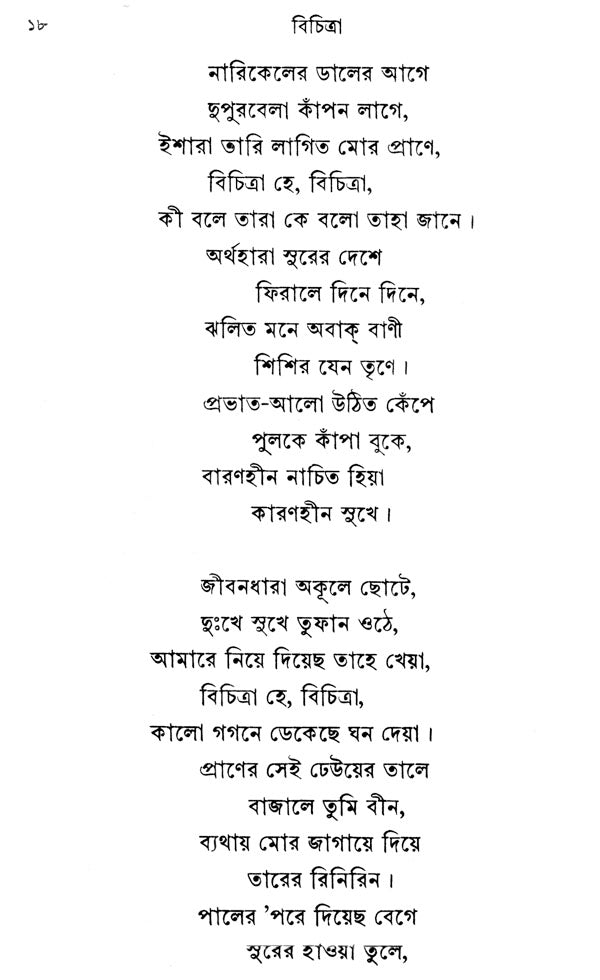 ১৮ বিচিত্রা
নারিকেলের ডালের আগে
দুপুরবেলা কাঁপন লাগে,
ইশারা তারি লাগিত মোর প্রাণে,
বিচিত্রা হে, বিচিত্রা,
কী বলে তারা কে বলো তাহা জানে।
অর্থহারা সুরের দেশে
ফিরালে দিনে দিনে,
ঝলিত মনে অবাক্ বাণী
শিশির যেন তৃণে।
প্রভাত-আলো উঠিত কেঁপে
পুলকে কাঁপা বুকে,
বারণহীন নাচিত হিয়া
কারণহীন সুখে।
জীবনধারা অকূলে ছোটে,
দুঃখে সুখে তুফান ওঠে,
আমারে নিয়ে দিয়েছ তাহে খেয়া,
বিচিত্রা হে, বিচিত্রা,
কালো গগনে ডেকেছে ঘন দেয়া।
প্রাণের সেই ঢেউয়ের তালে
বাজালে তুমি বীন,
ব্যথায় মোর জাগায়ে দিয়ে
তারের রিনিরিন।
পালের 'পরে দিয়েছ বেগে
সুরের হাওয়া তুলে,